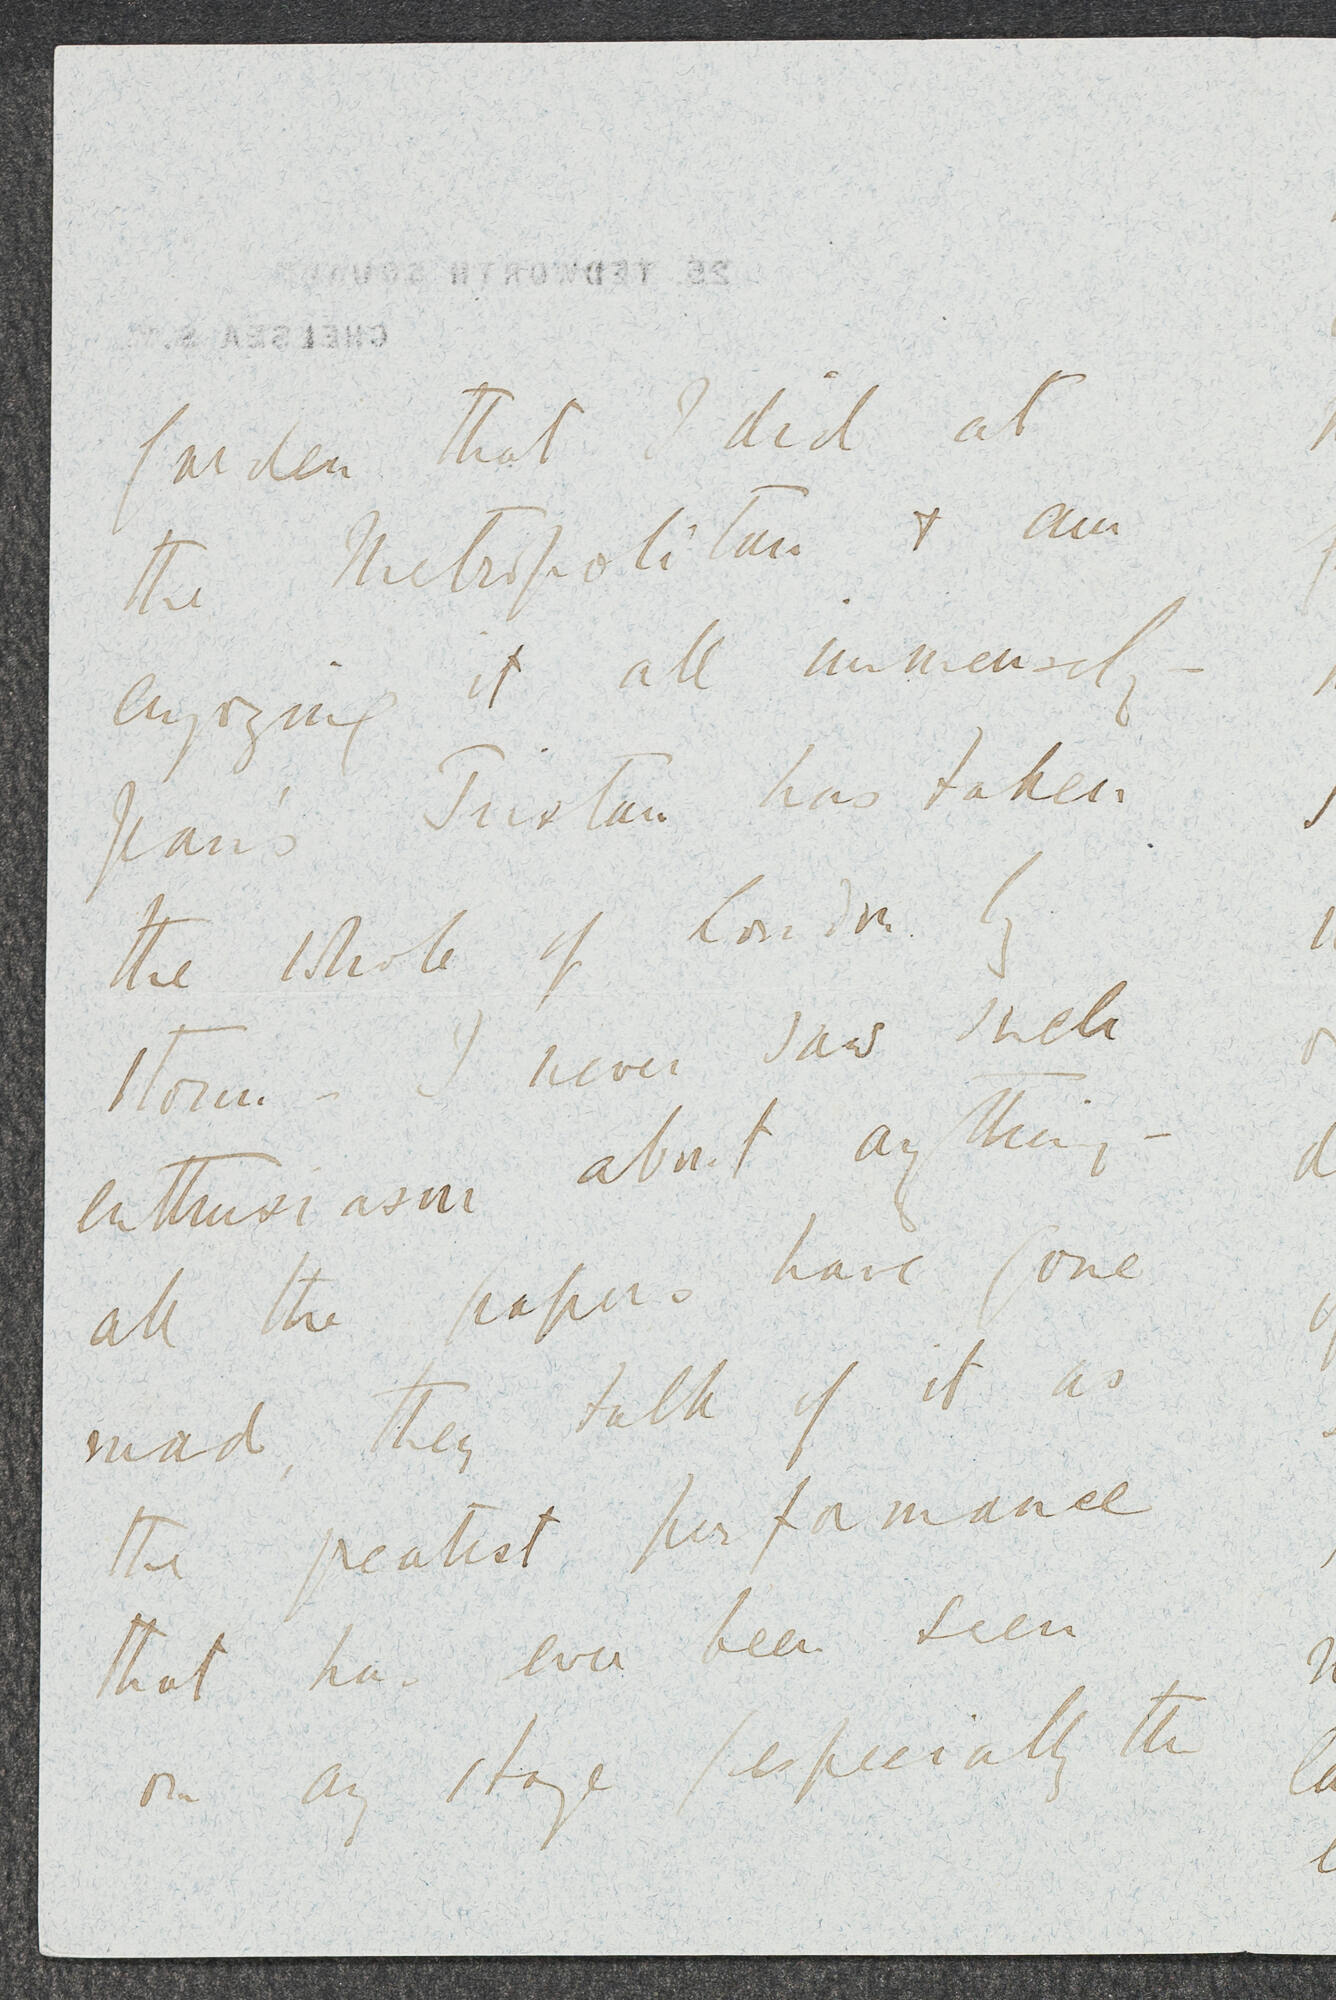 25 TEDWORTH SQUARE
CHELSEA S.W.
Garden that I did at
the Metropolitan & am
enjoying it all immensely –
Jean's Tristan has taken
the whole of London by
storm – I never saw such
enthusiasm about anything –
all the papers have gone
mad, they talk of it as
the greatest performance
that has ever been seen
on any stage (especially the